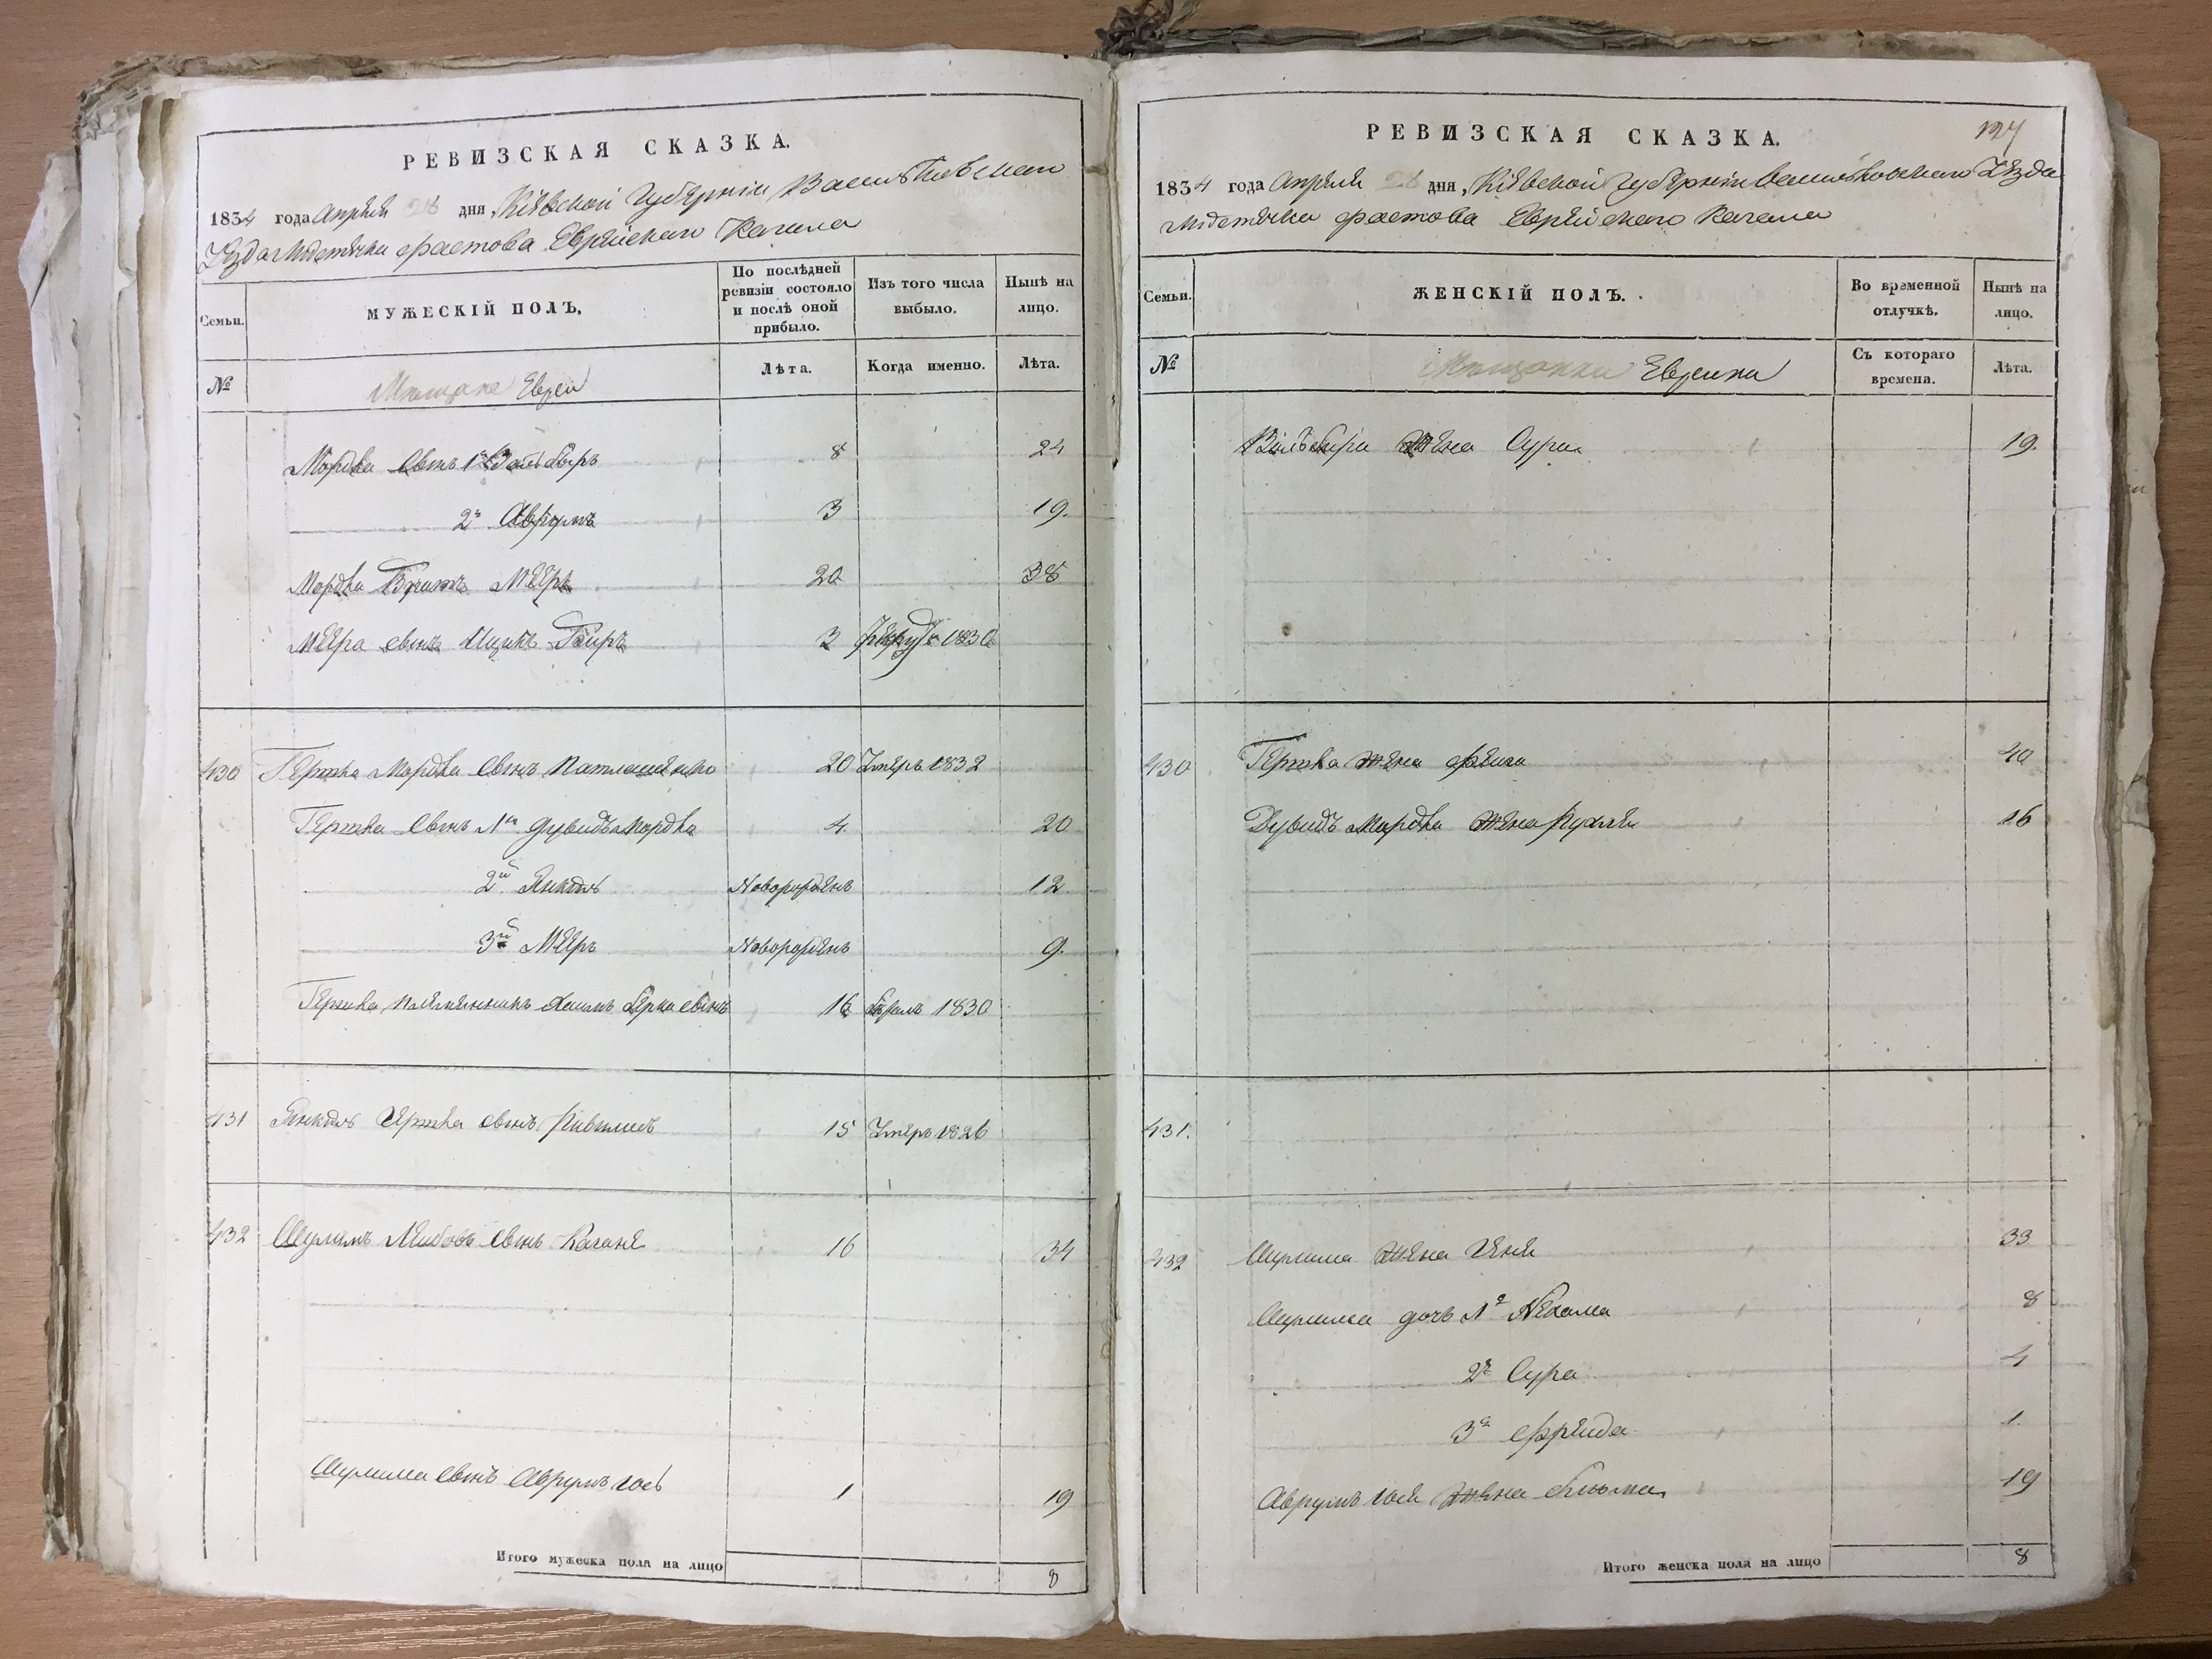 РЕВИЗСКАЯ СКАЗКА.
1834 года Апреля 28 дня, Кіевской Губерніи Васильковскаго
Уезда Местечка Фастова Еврейскаго Кагала
Семьи.
МУЖЕСКІЙ ПОЛЪ.
По послѣдней ревизіи состояло и послѣ оной прибыло.
Изъ того числа выбыло.
Нынѣ на лицо.
№
Мещане Евреи
Лѣта.
Когда именно.
Лѣта.
Мордка сынъ 1й 8 24
2й Аврумъ 3 19.
Мордка Братъ Мееръ 20 38
Меера сынъ Ицикъ 3 1830
430 Гершка Мордка сынъ 20 Умеръ 1832
Гершка сынъ 1й Дувидъ Мордка 4 20
2й Янкель Новорожденъ 12
3й Мееръ Новорожденъ 9.
Гершка племянникъ Хаимъ Берка сынъ 16 1830
431 Янкель Гершка сынъ 15 Умеръ 1826
432 Шулимъ Лейбовъ сынъ Кагане 16 34
Шулима сынъ Аврумъ Іось 1 19
Итого мужеска пола на лицо 8
РЕВИЗСКАЯ СКАЗКА.
1834 года Апреля 28 дня, Кіевской Губерніи Васильковскаго Уезда
Местечка Фастова Еврейскаго Кагала
Семьи.
ЖЕНСКІЙ ПОЛЪ.
Во временной отлучкѣ.
Нынѣ на лицо.
№
Мещанки Еврейки
Съ котораго времена.
Лѣта.
жена Сура 19.
430 Гершка жена Фейга 40
Дувидъ Мордка жена Рухля 16
431.
432 Шулима жена Геня 33
Шулима дочь 1я Нехама 8
2я Сура 4
3я Фрейда 1.
Аврумъ Іося жена 19
Итого женска пола на лицо 8